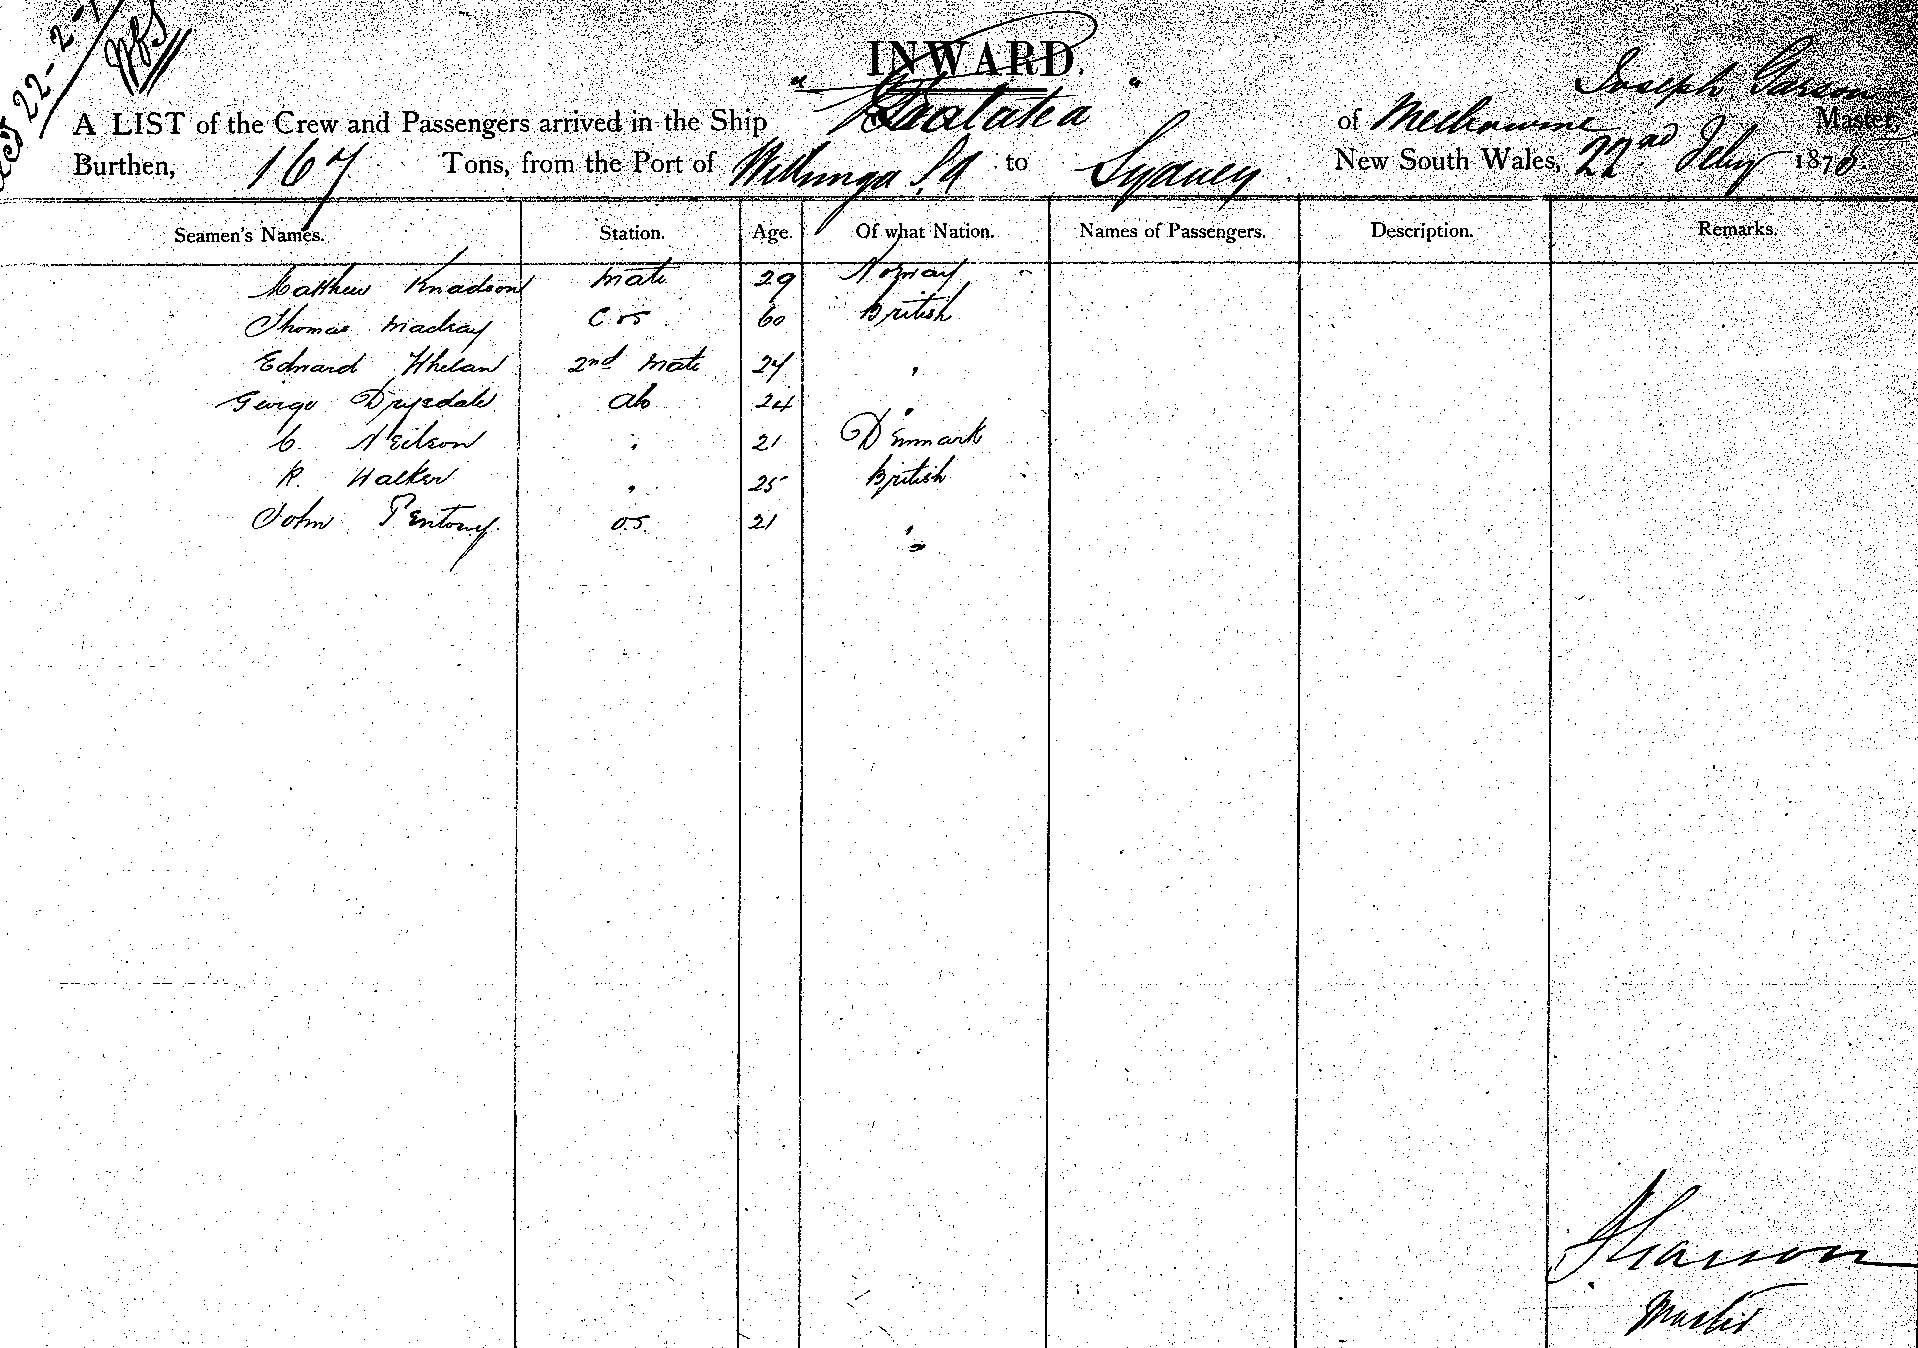 22-2-7
INWARD.
Joseph Garson
A LIST of the Crew and Passengers arrived in the Ship " Galatea " of Melbourne Master,
Burthen, 167 Tons, from the Port of Willunga SA to Sydney New South Wales, 22nd Feby 1878
Seamen's Names. Station. Age. Of what Nation. Names of Passengers. Description. Remarks.
Matthew Knadson Mate 29 Norway
Thomas Mackay C os 60 British
Edward Whelan 2nd Mate 24 "
George Drysdale Ab 24 "
C. Neilson " 21 Denmark
R. Walker " 25 British
John Pentony os 21 "
JGarson
Master